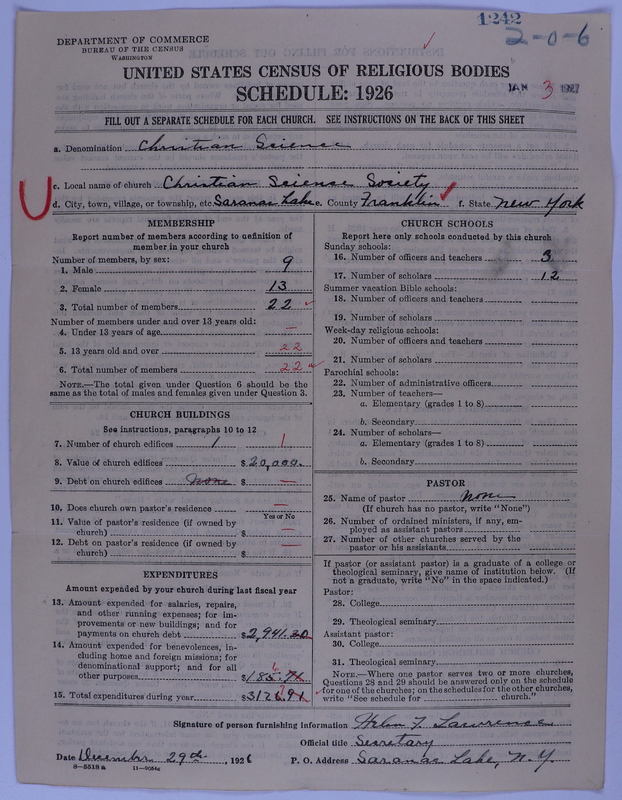 1242
2-0-6
DEPARTMENT OF COMMERCE
BUREAU OF THE CENSUS
WASHINGTON
UNITED STATES CENSUS OF RELIGIOUS BODIES
JAN 3 1927
SCHEDULE: 1926
FILL OUT A SEPARATE SCHEDULE FOR EACH CHURCH. SEE INSTRUCTIONS ON THE BACK OF THIS SHEET
a. Denomination Christian Science
c. Local name of church Christian Science Society
d. City, town, village, or township, etc. Saranac Lake e. County Franklin f. State New York
MEMBERSHIP
Report number of members according to definition of
member in your church
Number of members, by sex:
1. Male 9
2. Female 13
3. Total number of members 22
Number of members under and over 13 years old:
4. Under 13 years of age —
5. 13 years old and over 22
6. Total number of members 22
NOTE.—The total given under Question 6 should be the
same as the total of males and females given under Question 3.
CHURCH BUILDINGS
See instructions, paragraphs 10 to 12
7. Number of church edifices 1 1
8. Value of church edifices $20,000.
9. Debt on church edifices None $ —
10. Does church own pastor's residence —
Yes or No
11. Value of pastor's residence (if owned by
church) $ —
12. Debt on pastor's residence (if owned by
church) $ —
EXPENDITURES
Amount expended by your church during last fiscal year
13. Amount expended for salaries, repairs,
and other running expenses; for im-
provements or new buildings; and for
payments on church debt $2,941.20
14. Amount expended for benevolences, in-
cluding home and foreign missions; for
denominational support; and for all
other purposes $185.71
15. Total expenditures during year $3126.91
CHURCH SCHOOLS
Report here only schools conducted by this church
Sunday schools:
16. Number of officers and teachers 3
17. Number of scholars 12
Summer vacation Bible schools:
18. Number of officers and teachers
19. Number of scholars
Week-day religious schools:
20. Number of officers and teachers
21. Number of scholars
Parochial schools:
22. Number of administrative officers
23. Number of teachers—
a. Elementary (grades 1 to 8)
b. Secondary
24. Number of scholars—
a. Elementary (grades 1 to 8)
b. Secondary
PASTOR
25. Name of pastor None
(If church has no pastor, write "None")
26. Number of ordained ministers, if any, em-
ployed as assistant pastors
27. Number of other churches served by the
pastor or his assistants
If pastor (or assistant pastor) is a graduate of a college or
theological seminary, give name of institution below. (If
not a graduate, write "No" in the space indicated.)
Pastor:
28. College
29. Theological seminary
Assistant pastor:
30. College
31. Theological seminary
NOTE.—Where one pastor serves two or more churches,
Questions 28 and 29 should be answered only on the schedule
for one of the churches; on the schedules for the other churches,
write "See schedule for church."
Signature of person furnishing information Helen F. Lawrence
Official title Secretary
Date December 29th, 1926 P. O. Address Saranac Lake, N.Y.
8-5518 a 11-9054a